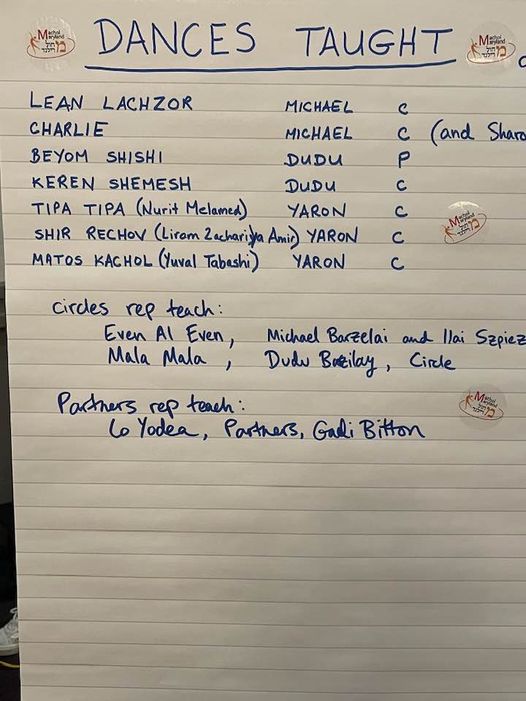 DANCES TAUGHT
Machol
Maryland
LEAN LACHZOR MICHAEL C
CHARLIE MICHAEL C (and Sharo
BEYOM SHISHI DUDU P
KEREN SHEMESH DUDU C
TIPA TIPA (Nurit Melamed) YARON C
SHIR RECHOV (Liram Zachariya Amir) YARON C
MATOS KACHOL (Yuval Tabashi) YARON C
circles rep teach:
Even Al Even, Michael Barzelai and Ilai Szpiez
Mala Mala, Dudu Bazilay, Circle
Partners rep teach:
Lo Yodea, Partners, Gadi Bitton